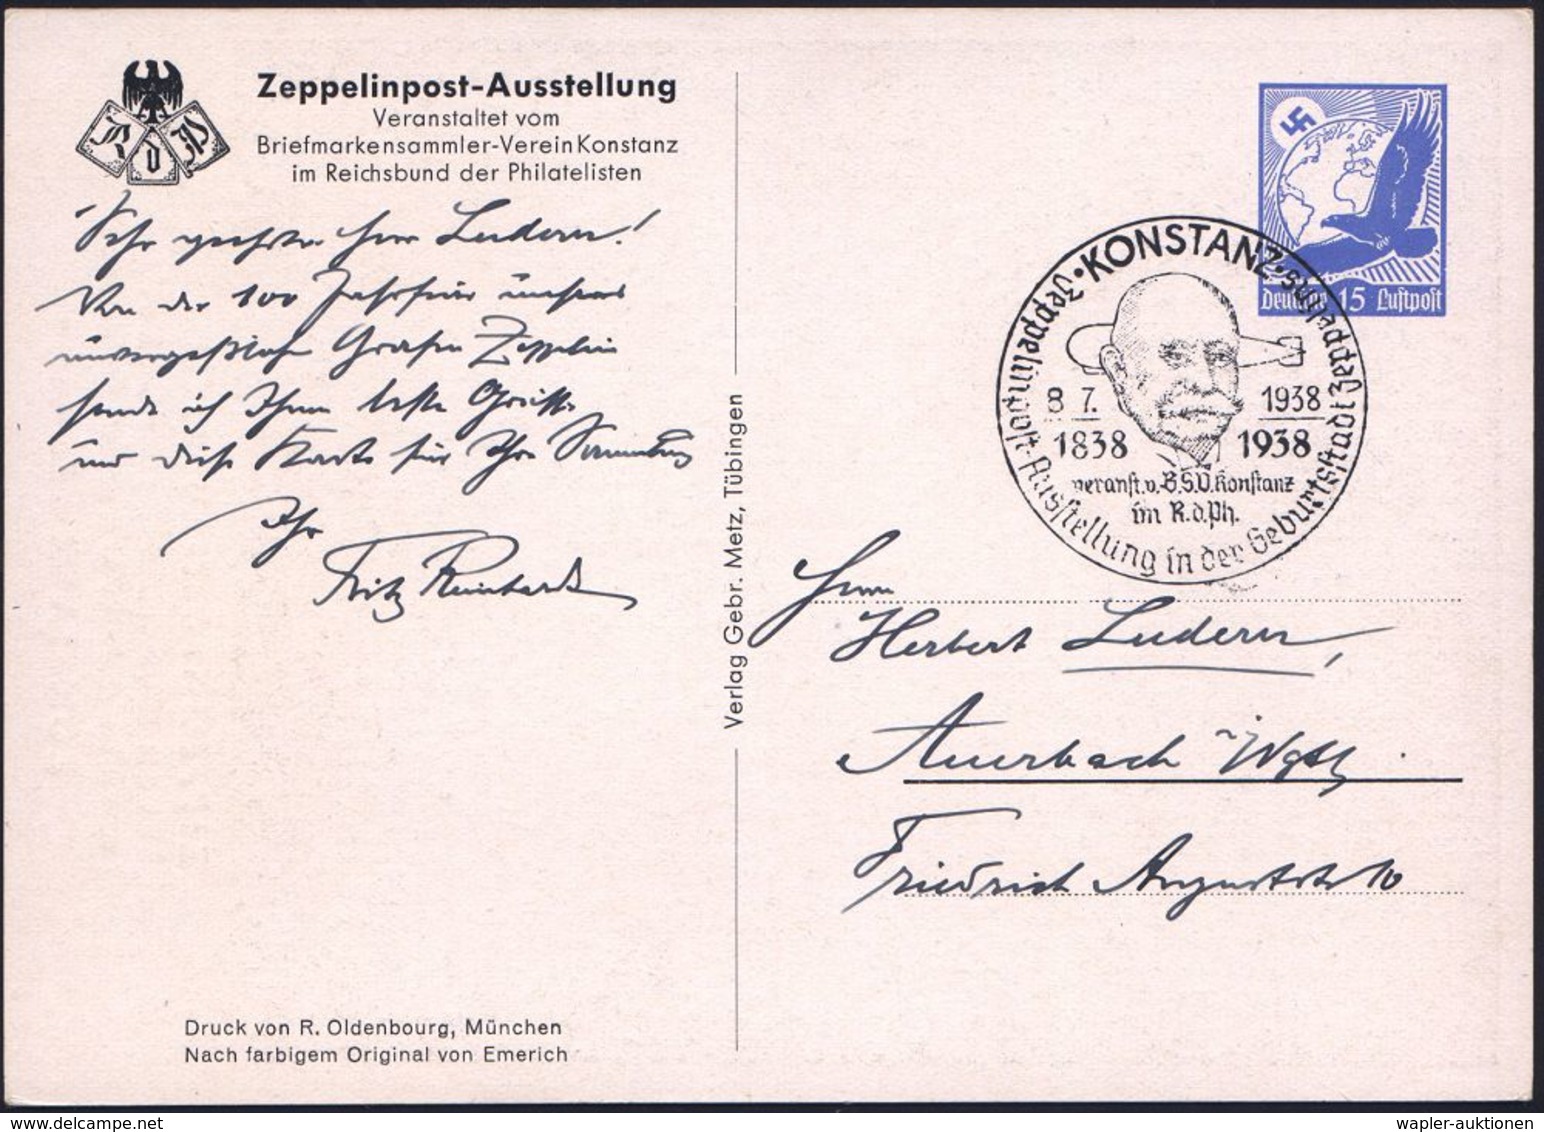 Zeppelinpost-Ausstellung
Veranstaltet vom
Briefmarkensammler-Verein Konstanz
im Reichsbund der Philatelisten
R d P
Sehr geehrter Herr Ludern!
Von der 100 Jahrfeier unseres
unvergeßlichen Grafen Zeppelin
sende ich Ihnen beste Grüsse
und diese Karte für Ihre Sammlung
Ihr
Fritz Reinhardt
Verlag Gebr. Metz, Tübingen
Druck von R. Oldenbourg, München
Nach farbigem Original von Emerich
15 Luftpost
• KONSTANZ •
Zeppelinpost-Ausstellung in der Geburtsstadt Zeppelins
8 7. 1938
1838 1938
veranst. v. B.S.V. Konstanz
im R.d.Ph.
Herrn
Herbert Ludern,
Auerbach i/Vgtl.
Friedrich Auguststr 10
wapler-auktionen